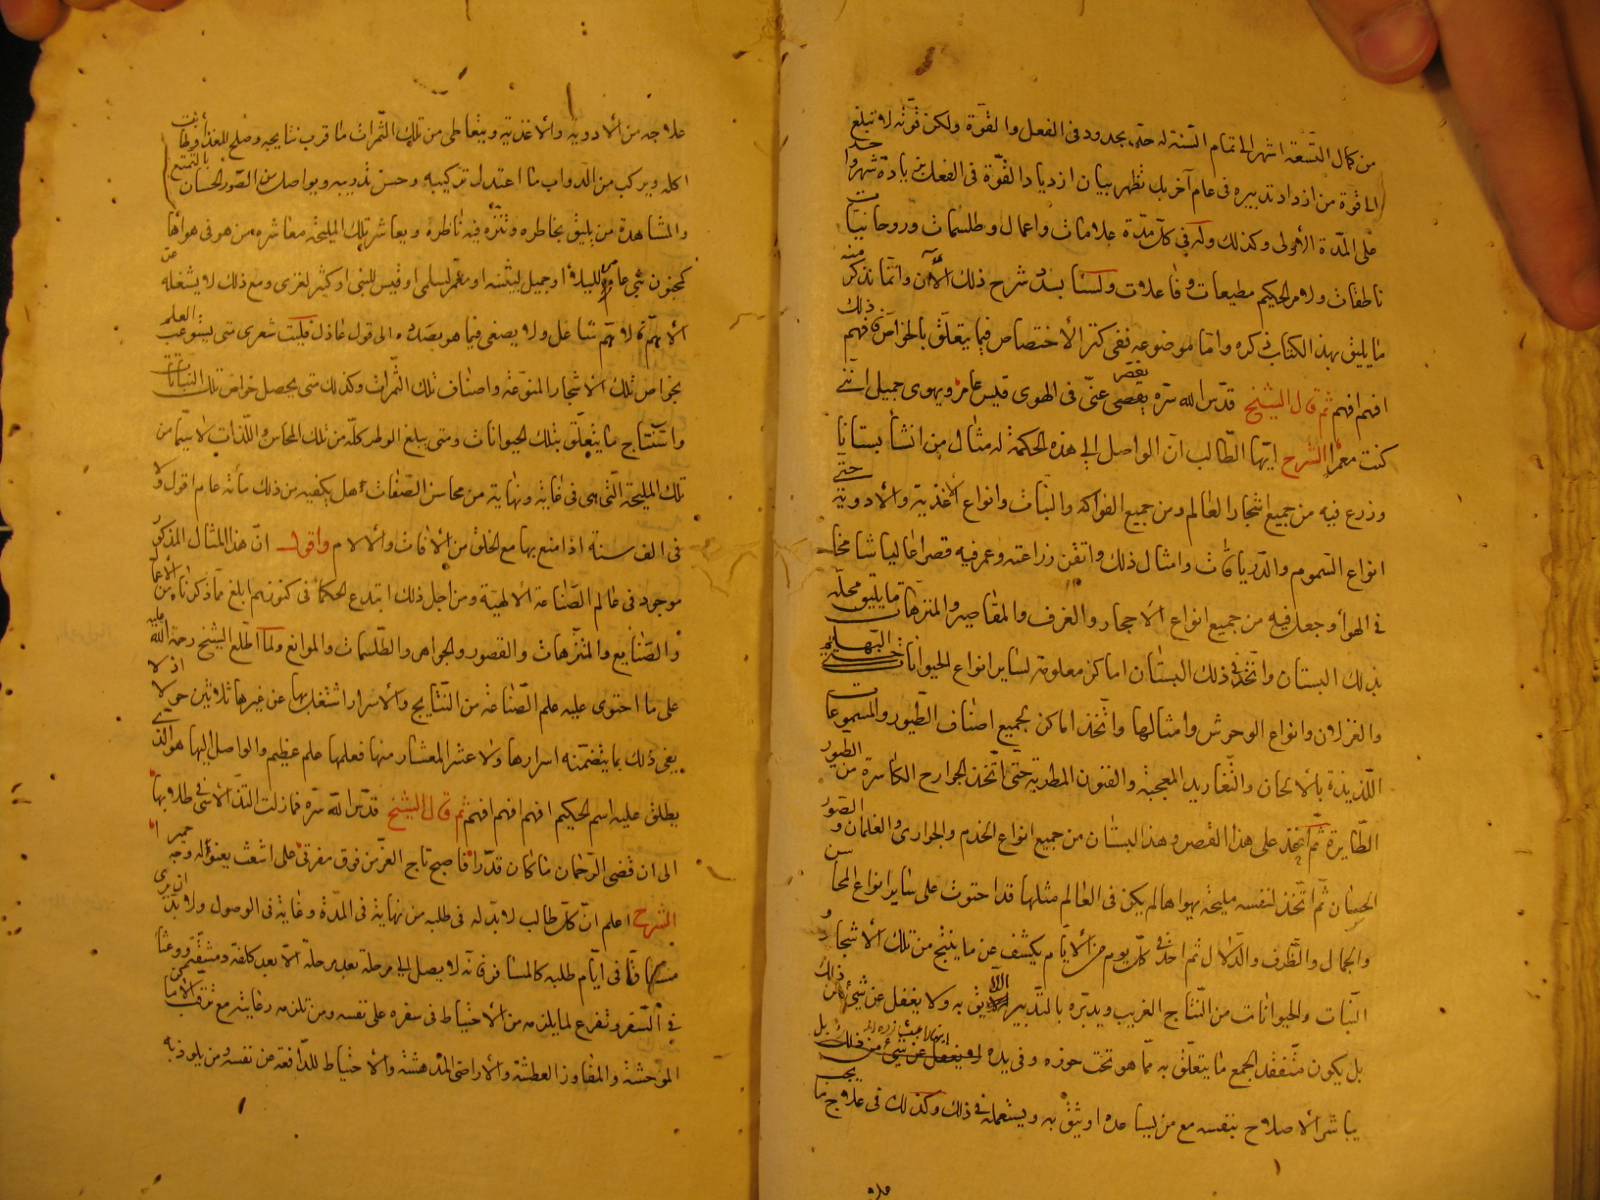 من كمال التسعة اشهر الى تمام السنة له حد بحدود فى الفعل والقوة ولكن قوته لا تبلغ حد
الى قوة من ازداد تدبيره فى عام آخر بل تظهر بيان ازدياد القوة فى الفعل بزيادة شهر وا
على المدة الاولى وكذلك وله فى كل مدة علامات واعمال وطلسمات وروحانيات
ناطقات ولامر الحكيم مطيعات وفاعلات ولسنا بسدد شرح ذلك الآن وانما نذكر منه
ما يليق بهذا الكتاب ذكره واما موضوعه ففى كنز الاختصاص فيما يتعلق بالخواص فافهم ذلك
افهم افهم ثم قال الشيخ قدس الله سره يقصر عنى فى الهوى قيس عامر ويهوى جميل اننى
كنت معمرا الشرح ايها الطالب ان الواصل الى هذه الحكمة له مثال من انشأ بستانا
وزرع فيه من جميع اشجار العالم ومن جميع الفواكه والنبات وانواع الاغذية والادوية حتى
انواع السموم والدرياقات وامثال ذلك واتقن زراعته وعمر فيه قصرا عاليا شامخا
فى الهوأ وجعل فيه من جميع انواع الاحجار والغرف والمقاصير والمنتزهات ما يليق محله
بذلك البستان واتخذ فى ذلك البستان اماكن معلومة لساير انواع الحيوانات البهايم
والغزلان وانواع الوحوش وامثالها واتخذ اماكن لجميع اصناف الطيور والمسموعات
اللذيذة بالالحان والتغاريد المعجبة والفنون المطربة حتى اتخذ الجوارح الكاسرة من الطيور
الطايرة ثم اتخذ على هذا القصر وهذا البستان من جميع انواع الخدم والجوارى والغلمان والصور
الحسان ثم اتخذ لنفسه مليحة يهواها لم يكن فى العالم مثلها قد احتوت على ساير انواع المحاسن
والجمال والظرف والدلال ثم اخذ فى كل يوم من الايام يكشف عن ما ينتج من تلك الاشجار و
النبات والحيوانات من النتايج الغريب ويدبره بالتدبير اللايق به ولا يغفل عن شئ من ذلك
بل يكون متفقد الجمع ما يتعلق به مما هو تحت حوزه وفى يده لا يغفل عن شئ من ذلك بل
يباشر الاصلاح بنفسه مع من يساعده او يثق به ويستعمله فى ذلك وكذلك فى علاج ما يجب
علا
علاجه من الادوية والاغذية ويتعاطى من تلك الثمرات ما قرب نتايجه وصلح للغذا وقطا
اكله ويركب من الدواب ما اعتدل تركيبه وحسن تدريبه ويواصل من الصور الحسان بالتمتع
والمشاهدة من يليق بخاطره وتتنزه فيه ناظره ويعاشر تلك المليحة معاشره من هو فى هواها
كمجنون بنى عامر لليلا أو جميل لبثينه او معمر لسلمى او قيس للبنى او كثير لعزى ومع ذلك لا يشغله عن
الامر مهم شاغل ولا يصغى فيما هو بصدده الى قول عاذل فليت شعرى متى يستوعب العلم
بخواص تلك الاشجار المنوعة واصناف تلك الثمرات وكذلك متى يحصل خواص تلك النباتات
واستنتاج ما يتعلق بتلك الحيوانات ومتى يبلغ الوطر كله من تلك المحاسن واللذات لا سيما من
تلك المليحة التى هى فى غاية ونهاية من محاسن الصفات هل يكفيه من ذلك مأته عام اقول ولا
فى الف سنة اذا منع بها مع الخلق من الافات والالام واقول ان هذا المثال المذكور
موجود فى عالم الصناعة الالهية ومن اجل ذلك ابتدع الحكما فى كنوزهم ابلغ مما ذكرنا من الاعمال
والصنايع والمتنزهات والقصور والجواهر والطلسمات والموانع ولما اطلع الشيخ رحمة الله عليه
على ما احتوى عليه علم الصناعة من النتايج والاسرار اشتغل بها عن غيرها ثلاثين حولا اذ لا
يفى ذلك بما يتضمنه اسرارها ولا عشر المعشار منها فعلمها علم عظيم والواصل اليها هو الذى
يطلق عليه اسم الحكيم افهم افهم افهم ثم قال الشيخ قدس الله سره فما زلت التذ الاسى فى طلابها
الى ان قضى الرحمان ما كان قدرا فاصبح تاج العز من فوق مفرقى على اشعث يعنو له وجه حمير ا
الشرح اعلم ان كل طالب لا بد له فى طلبه من نهاية فى المدة وغاية فى الوصول ولا بد ان يرى
مشاقا فى ايام طلبه كالمسافر فانه لا يصل الى مرحلة بعد مرحلة الا بعد كلفة ومشقة ووعثا
فى السفر وتفرع لما يلزمه من الاحتياط فى سفره على نفسه ومن تلزمه رعايته مع ترقب الاماكن
الموحشة والمفاوز العطشة والاراضى المدهشة والاحتياط للدافعة عن نفسه ومن يلوذ به